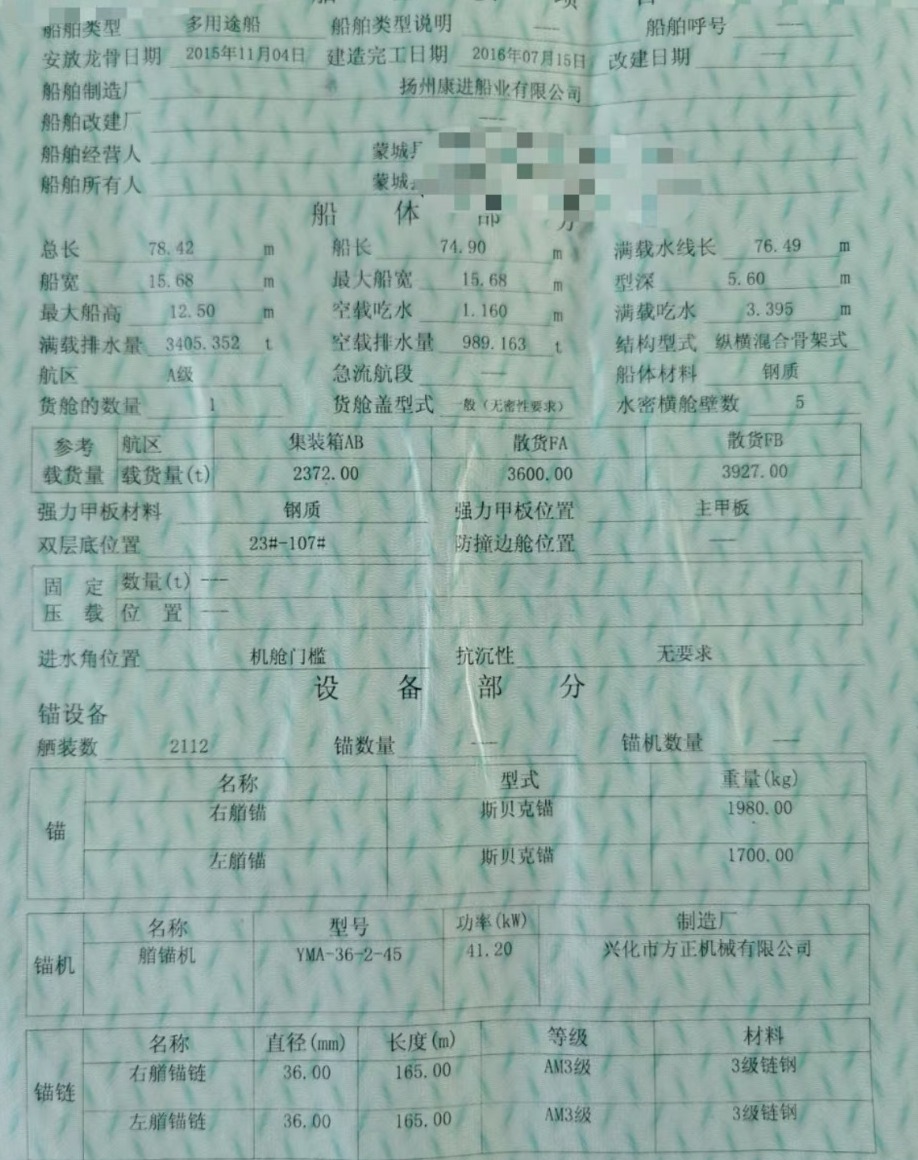 船舶类型 多用途船 船舶类型说明 —— 船舶呼号 ——
安放龙骨日期 2015年11月04日 建造完工日期 2016年07月15日 改建日期 ——
船舶制造厂 扬州康进船业有限公司
船舶改建厂 ——
船舶经营人 蒙城
船舶所有人 蒙城
船 体 部 分
总长 78.42 m 船长 74.90 m 满载水线长 76.49 m
船宽 15.68 m 最大船宽 15.68 m 型深 5.60 m
最大船高 12.50 m 空载吃水 1.160 m 满载吃水 3.395 m
满载排水量 3405.352 t 空载排水量 989.163 t 结构型式 纵横混合骨架式
航区 A级 急流航段 —— 船体材料 钢质
货舱的数量 1 货舱盖型式 一般（无密性要求） 水密横舱壁数 5
参考 航区 集装箱AB 散货FA 散货FB
载货量 载货量(t) 2372.00 3600.00 3927.00
强力甲板材料 钢质 强力甲板位置 主甲板
双层底位置 23#-107# 防撞边舱位置 ——
固 定 数量(t) ——
压 载 位 置 ——
进水角位置 机舱门槛 抗沉性 无要求
设 备 部 分
锚设备
舾装数 2112 锚数量 —— 锚机数量 ——
名称 型式 重量(kg)
锚 右艏锚 斯贝克锚 1980.00
左艏锚 斯贝克锚 1700.00
名称 型号 功率(kW) 制造厂
锚机 艏锚机 YMA-36-2-45 41.20 兴化市方正机械有限公司
名称 直径(mm) 长度(m) 等级 材料
锚链 右艏锚链 36.00 165.00 AM3级 3级链钢
左艏锚链 36.00 165.00 AM3级 3级链钢